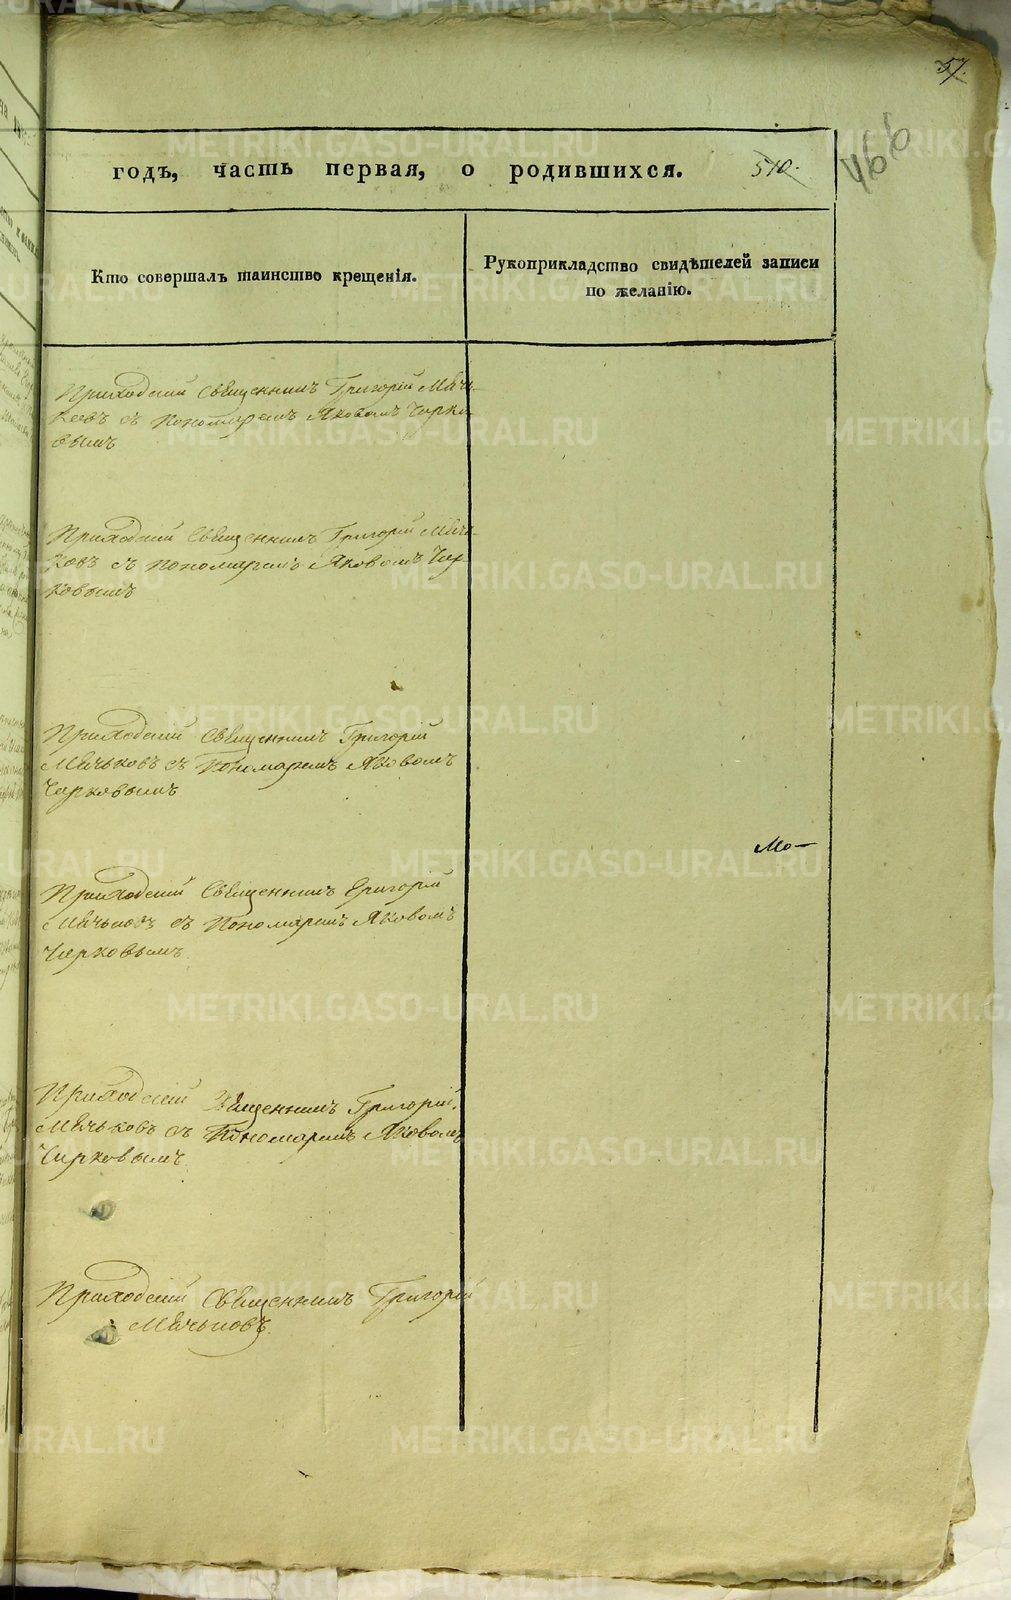 57.
466
годъ, часть первая, о родившихся. 510.
Кто совершалъ таинство крещенія.
Рукоприкладство свидѣтелей записи
по желанію.
Приходскій Священникъ Григорій Мячь-
ковъ съ Пономаремъ Яковомъ Чирко-
вымъ
Приходскій Священникъ Григорій Мячь-
ковъ съ Пономаремъ Яковомъ Чир-
ковымъ
Приходскій Священникъ Григорій
Мячьковъ съ Пономаремъ Яковомъ
Чирковымъ
Мо-
Приходскій Священникъ Григорій
Мячьковъ съ Пономаремъ Яковомъ
Чирковымъ
Приходскій Священникъ Григорій
Мячьковъ съ Пономаремъ Яковомъ
Чирковымъ
Приходскій Священникъ Григорій
Мячьковъ
METRIKI.GASO-URAL.RU